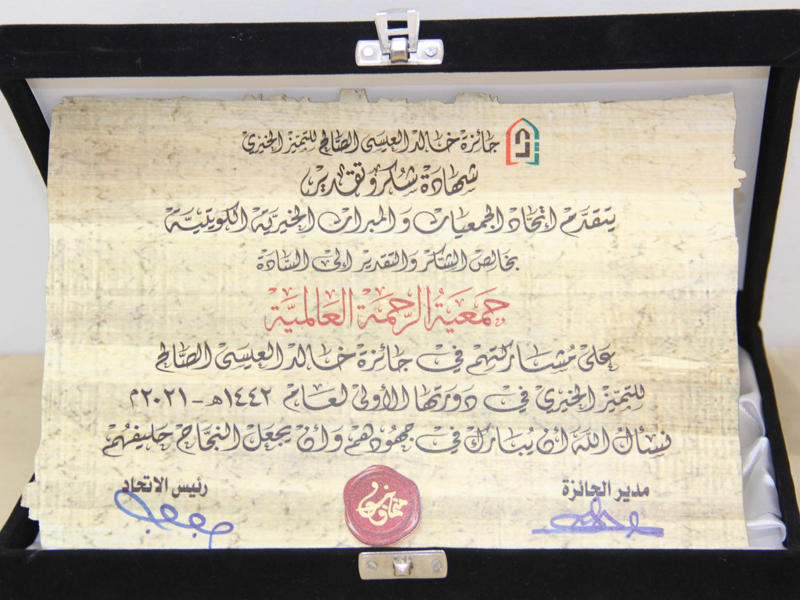 جائزة خالد العيسى الصالح للتميز الخيري
شهادة شكر وتقدير
يتقدم اتحاد الجمعيات والمبرات الخيرية الكويتية
بخالص الشكر والتقدير إلى السادة
جمعية الرحمة العالمية
على مشاركتهم في جائزة خالد العيسى الصالح
للتميز الخيري في دورتها الأولى لعام ١٤٤٢هـ - ٢٠٢١م
نسأل الله أن يبارك في جهودهم وأن يجعل النجاح حليفهم
مدير الجائزة
رئيس الاتحاد